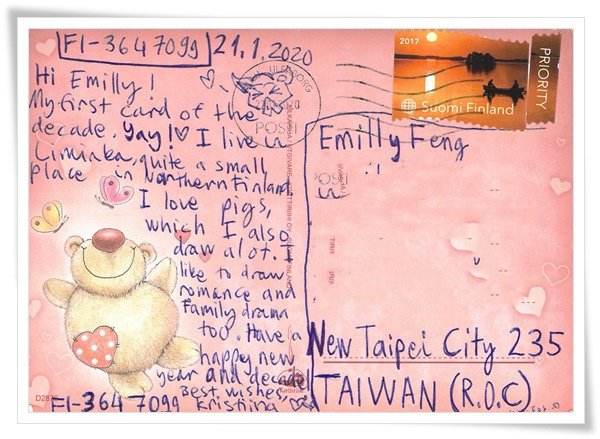 FI-3647099
21.1.2020
Hi Emilly!
My first card of the
decade. Yay! I live in
Liminka, quite a small
place in Northern Finland.
I love pigs,
which I also
draw a lot. I
like to draw
romance and
family drama
too. Have a
happy new
year and decade!
Best wishes,
Kristiina
FI-3647099
2017
Suomi Finland
PRIORITY
ULEÅBORG
POSTI
Emilly Feng
New Taipei City 235
TAIWAN (R.O.C)